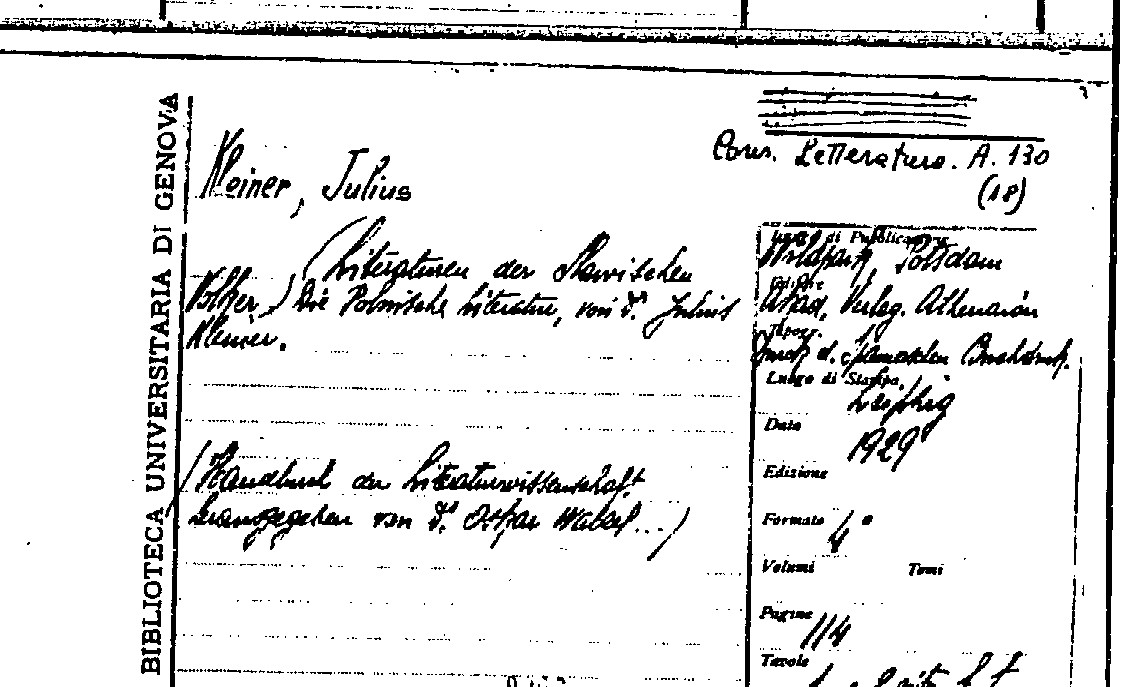 BIBLIOTECA UNIVERSITARIA DI GENOVA
Cons. Letteratura. A. 130
(18)
Kleiner, Julius
(Literaturen der Slawischen
Völker.) Die Polnische Literatur, von Dr. Julius
Kleiner.
(Handbuch der Literaturwissenschaft
herausgegeben von Dr. Oskar Walzel...)
Luogo di Pubblicazione
Wildpark, Potsdam
Akad. Verlag. Athenaion
Tipogr.
Druck d. Buchdruck.
Luogo di Stampa
Leipzig
Data
1929
Edizione
Formato 4°
Volumi Tomi
Pagine 114
Tavole